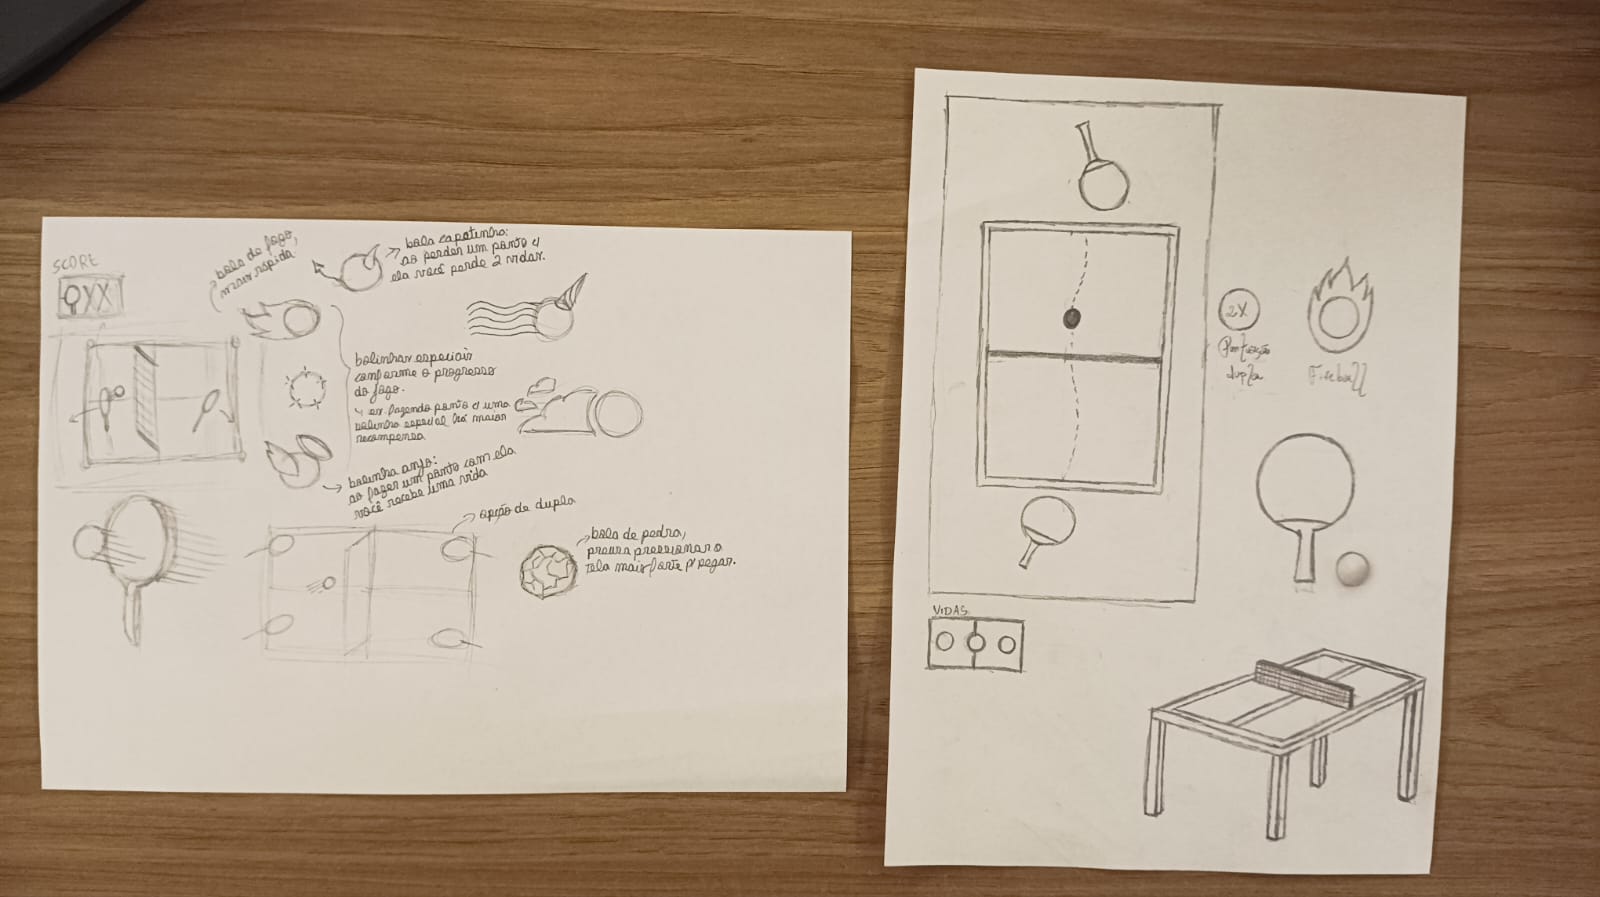 SCORE
bola de fogo,
mais rápida
bola capetinha:
ao perder um ponto c/
ela você perde 2 vidas.
bolinhas especiais
conforme o progresso
do jogo.
ex. fazendo ponto c/ uma
bolinha especial há maior
recompensa
bolinha anjo:
ao fazer um ponto com ela
você recebe uma vida
opção de dupla
bola de pedra,
precisa pressionar a
tela mais forte p/ pegar.
2X
Pontuação
dupla
Fireball
VIDAS